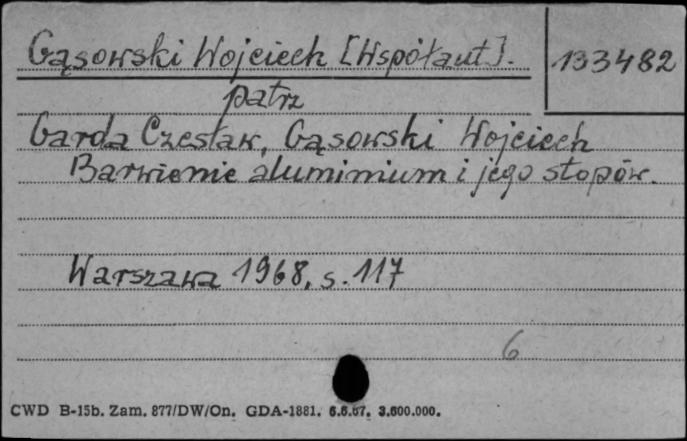 Gąsowski Wojciech [Współaut]. 133482
patrz
Garda Czesław, Gąsowski Wojciech
Barwienie aluminium i jego stopów.
Warszawa 1968, s. 117
6
CWD B-15b. Zam. 877/DW/On. GDA-1881. 6.6.67. 3.600.000.